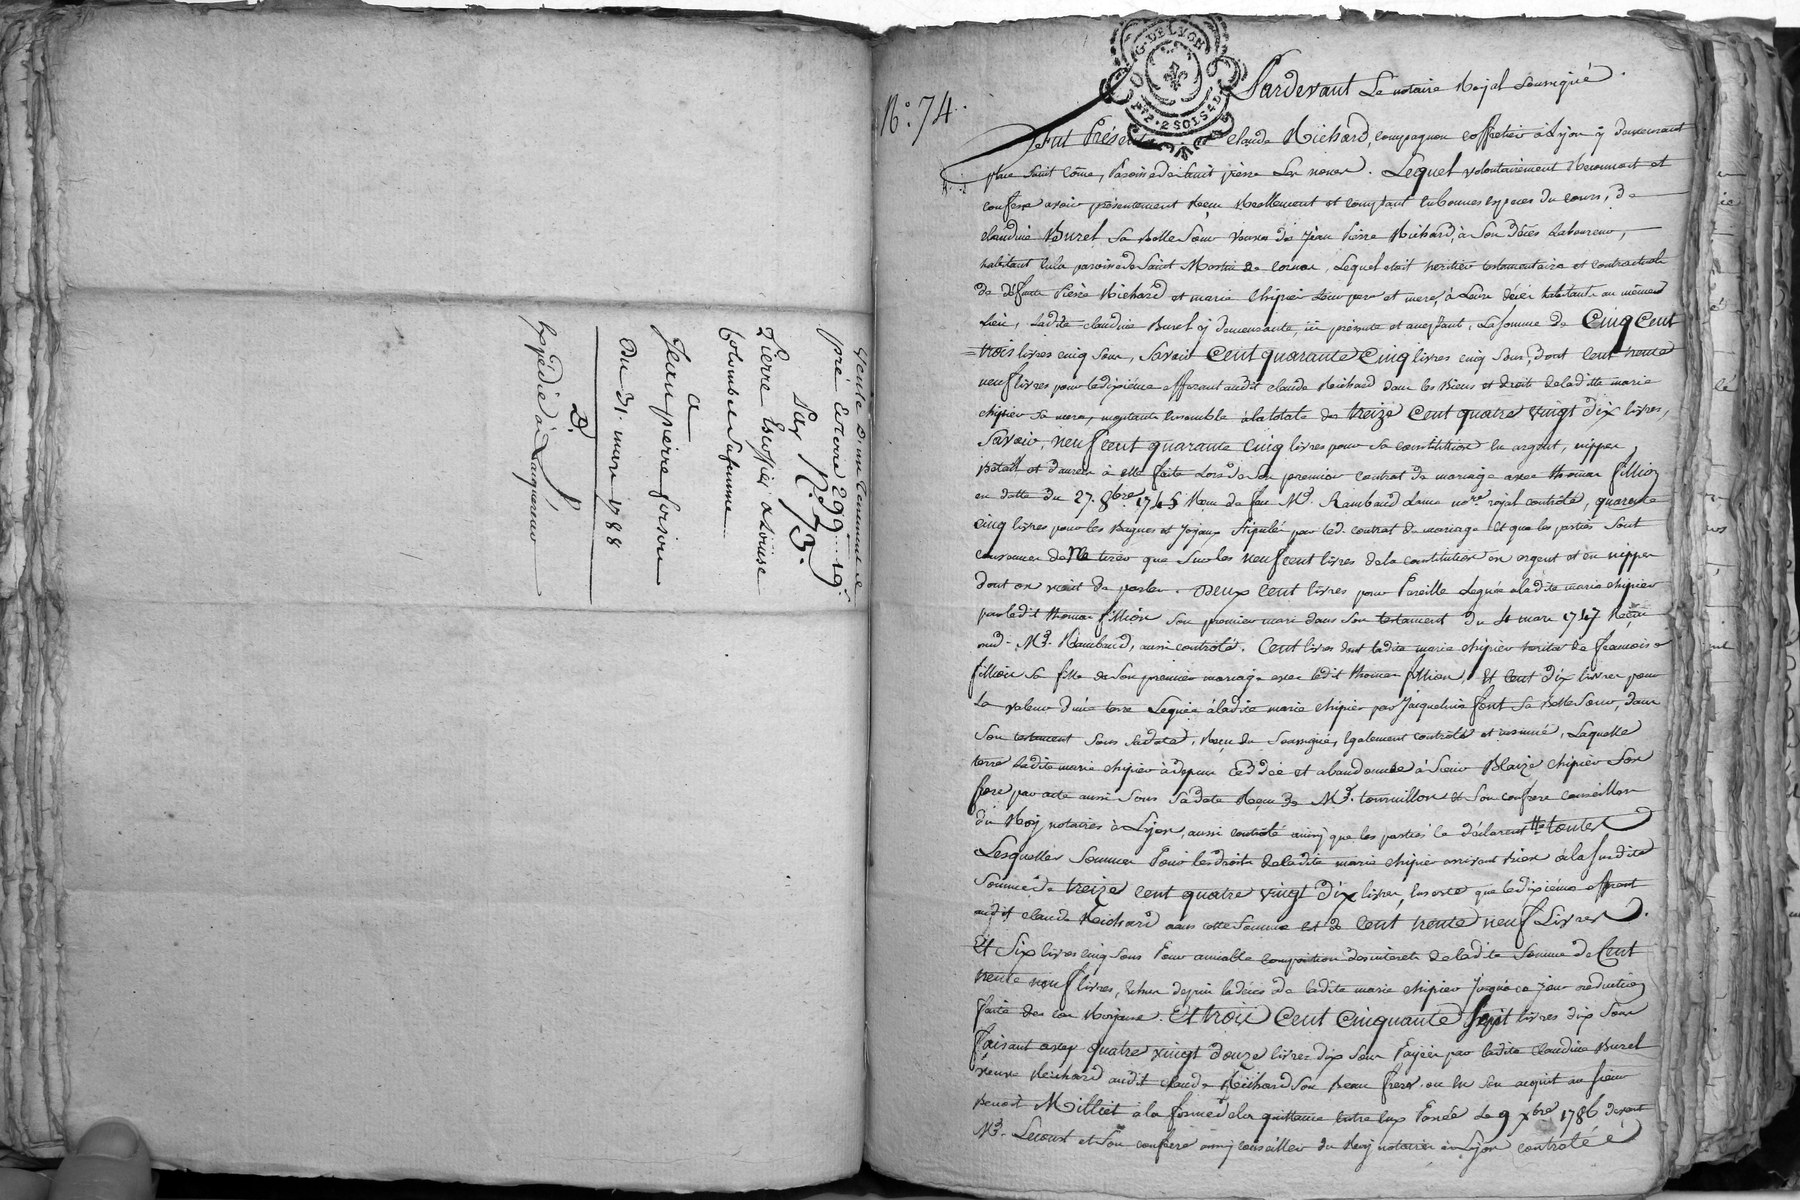 Vente d'un tenement de
pré et terre 299 ... 19
sur N° 73.
Pierre Escoffier & Louise
Colombet sa femme
a
Jean pierre forison
Du 31. mars 1788
D.
Expédié à l'acquereur
G. DE LYON
2 SOLS 4 D
N° 74.
Pardevant Le notaire Royal soussigné.
Fut Présent Claude Richard, compagnon coffretier à Lyon y demeurant
place Saint Côme, Paroisse de Saint pierre Les nones. Lequel volontairement Reconnoit et
confesse avoir présentement Reçu Réellement et comptant en bonnes especes du cours, de
claudine Burel sa Belle Sœur veuve de Jean Pierre Richard, à son déces Laboureur,
habitant en la paroisse de Saint Martin de Cornas, Lequel etoit heritier testamentaire et contractuel
de défunts Pierre Richard et marie Chipier Leurs pere et mere, à Leurs décès habitants au même
Lieu, Ladite claudine Burel y demeurante, ici présente et aceptant, La somme de Cinq Cent
trois livres cinq sous, Savoir Cent quarante Cinq livres cinq sous, dont Cent trente
neuf livres pour le dixiéme afferant audit claude Richard dans les Biens et droits de ladite marie
chipier sa mere, montants ensemble à la totale de treize Cent quatre vingt Dix livres,
Savoir, neuf cent quarante cinq livres pour sa constitution en argent, nippes,
Bétail et danrées à elle faite Lors de son premier contrat de mariage avec thomas fillion
en datte du 27. 8bre 1745 Reçu de feu Me. Rambaud dame nore. royal contrôlé, quarante
cinq livres pour les Bagues et Joyaux Stipulés par led. contrat de mariage Et que les parties sont
convenues de Ne tirer que sur les neuf cent livres de la constitution en argent et en nippes
dont on vient de parler. Deux Cent livres pour Pareille Leguée à ladite marie chipier
par ledit thomas fillion son premier mari dans son testament du 4 mars 1747 Reçu
dud. Me. Rambaud, aussi contrôlé. Cent livres dont ladite marie chipier herita de francoise
fillion sa fille de son premier mariage avec ledit thomas fillion, Et Cent dix livres pour
La valeur d'une terre Leguée à ladite marie chipier par Jacqueline font sa Belle Sœur, dans
son testament sous sa date, Reçu du Soussigné, également contrôlé et insinué, Laquelle
terre Ladite marie chipier à depuis Cédée et abandonnée à Sieur Blaize chipier son
frere par acte aussi sous sa date Reçu de Me. tournillon et son confrere conseillers
du Roy notaires à Lyon, aussi contrôlé ainsy que les parties le déclarent toutes
Lesquelles Sommes Pour les droits de ladite marie chipier arrivant bien à la susdite
somme de treize Cent quatre vingt Dix livres, en sorte que le dixiéme afferant
audit claude Richard dans cette somme est de Cent trente neuf Livres.
Et Six livres cinq sous Pour amiable composition des interets de ladite somme de Cent
trente neuf livres, échus depuis le décès de ladite marie chipier Jusqu'à ce jour réduction
faite des cas Royaux. Et trois Cent Cinquante Sept livres dix sous
faisant avec quatre vingt douze livres dix sous Payées par ladite claudine Burel
veuve Richard audit claude Richard son Beau frere ou en son acquit au sieur
Benoit Milliet à la forme de la quittance entre eux Passée Le 9 xbre 1786 devant
Me. Lecourt et son confrere aussy conseillers du Roy notaires à Lyon contrôlée